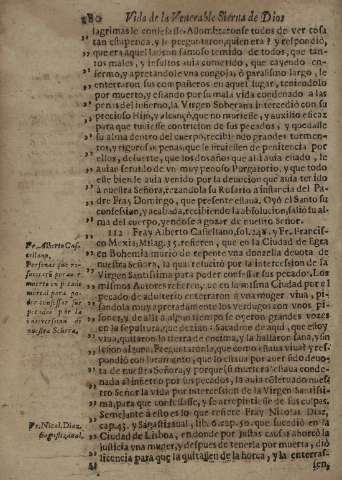 180 Vida de la Venerable Sierva de Dios
lagrimas le confesasse. Assombraronse todos de ver cosa
tan estupenda, y le preguntaron, quien era? y respondiò,
que era aquel ladron famoso temido de todos, que tan-
tos males, y insultos auia cometido, que cayendo en-
fermo, y apretandole vna congoja, ò parasismo largo, le
enterraron sus compañeros en aquel lugar, teniendolo
por muerto, y estando por su mala vida condenado a las
penas del infierno, la Virgen Soberana intercediò con su
precioso Hijo, y alcançò, que no muriesse, y auxilio eficaz
para que tuuiesse contricion de sus pecados, y quedasse
su alma dentro del cuerpo, recibiendo grandes tormen-
tos, y rigurosas penas, que le siruiessen de penitencia por
ellos, de suerte, que los dos años que alli auia estado, le
auian seruido de vn muy penoso Purgatorio, y que todo
esse bien le auia venido por la deuocion que auia tenido
à nuestra Señora, rezandola su Rosario a instancia del Pa-
dre Fray Domingo, que presente estaua. Oyò el Santo su
confession, y acabada, recibiendo la absolucion, saliò su al-
ma del cuerpo, yendose a gozar de nuestro Señor.
112 Fray Alberto Castellano, fol. 248. y Fr. Francis-
co Mexia, Milag. 35. refieren, que en la Ciudad de Egra
en Bohemia murio de repente vna donzella deuota de
nuestra Señora, la qual resucitò por la intercession de la
Virgen Santissima para poder confessar sus pecados. Los
mismos Autores refieren, que en la misma Ciudad por el
pecado de adulterio enterraron a vna muger viua, pi-
sandola muy apretadamente los verdugos con vnos pi-
sones, y de alli a algun tiempo se oyeron grandes vozes
en la sepultura, que dezian: Sacadme de aqui, que estoy
viua, quitaron la tierra de encima, y la hallaron sana, y sin
lesion alguna. Preguntaronla, que como estaua viua? y res-
pondiò con lo contrario, que la causa por auer sido deuo-
ta de nuestra Señora, y porque si muriera estaua conde-
nada al infierno por sus pecados, la auia conseruado nues-
tro Señor la vida por intercession de la Virgen Santissi-
ma, para que confessasse, y se arrepintiesse de sus culpas.
Semejante à esto es lo que refiere Fray Nicolas Diaz,
cap. 43. y Sagastizaual, lib. 6. cap. 50. que sucediò en la
Ciudad de Lisboa, en donde por justas causas ahorcò la
justicia vna muger, y despues de tenerla por muerta, diò
licencia para que la quitassen de la horca, y la enterras-
sen,
Fr. Alberto Cas-
tellano.
Personas que re-
sucitò
nuestra Señora.
Fr. Nicol. Diaz.
Sagastizaual.